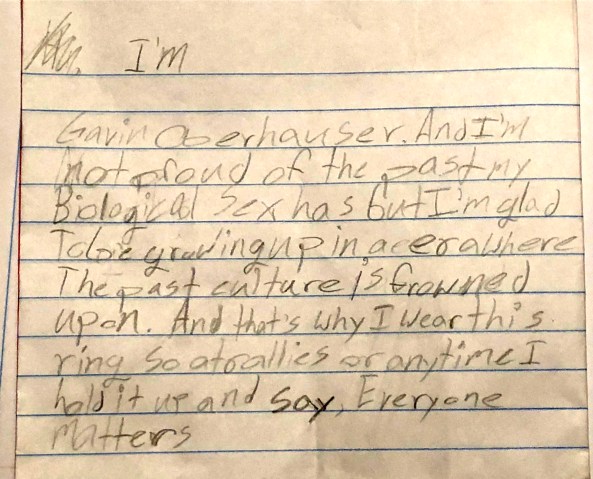 I'm
Gavin Oberhauser. And I'm
not proud of the past my
Biological Sex has but I'm glad
To be growing up in a era where
The past culture is frowned
upon. And that's why I wear this
ring so at rallies or anytime I
hold it up and say, Everyone
Matters